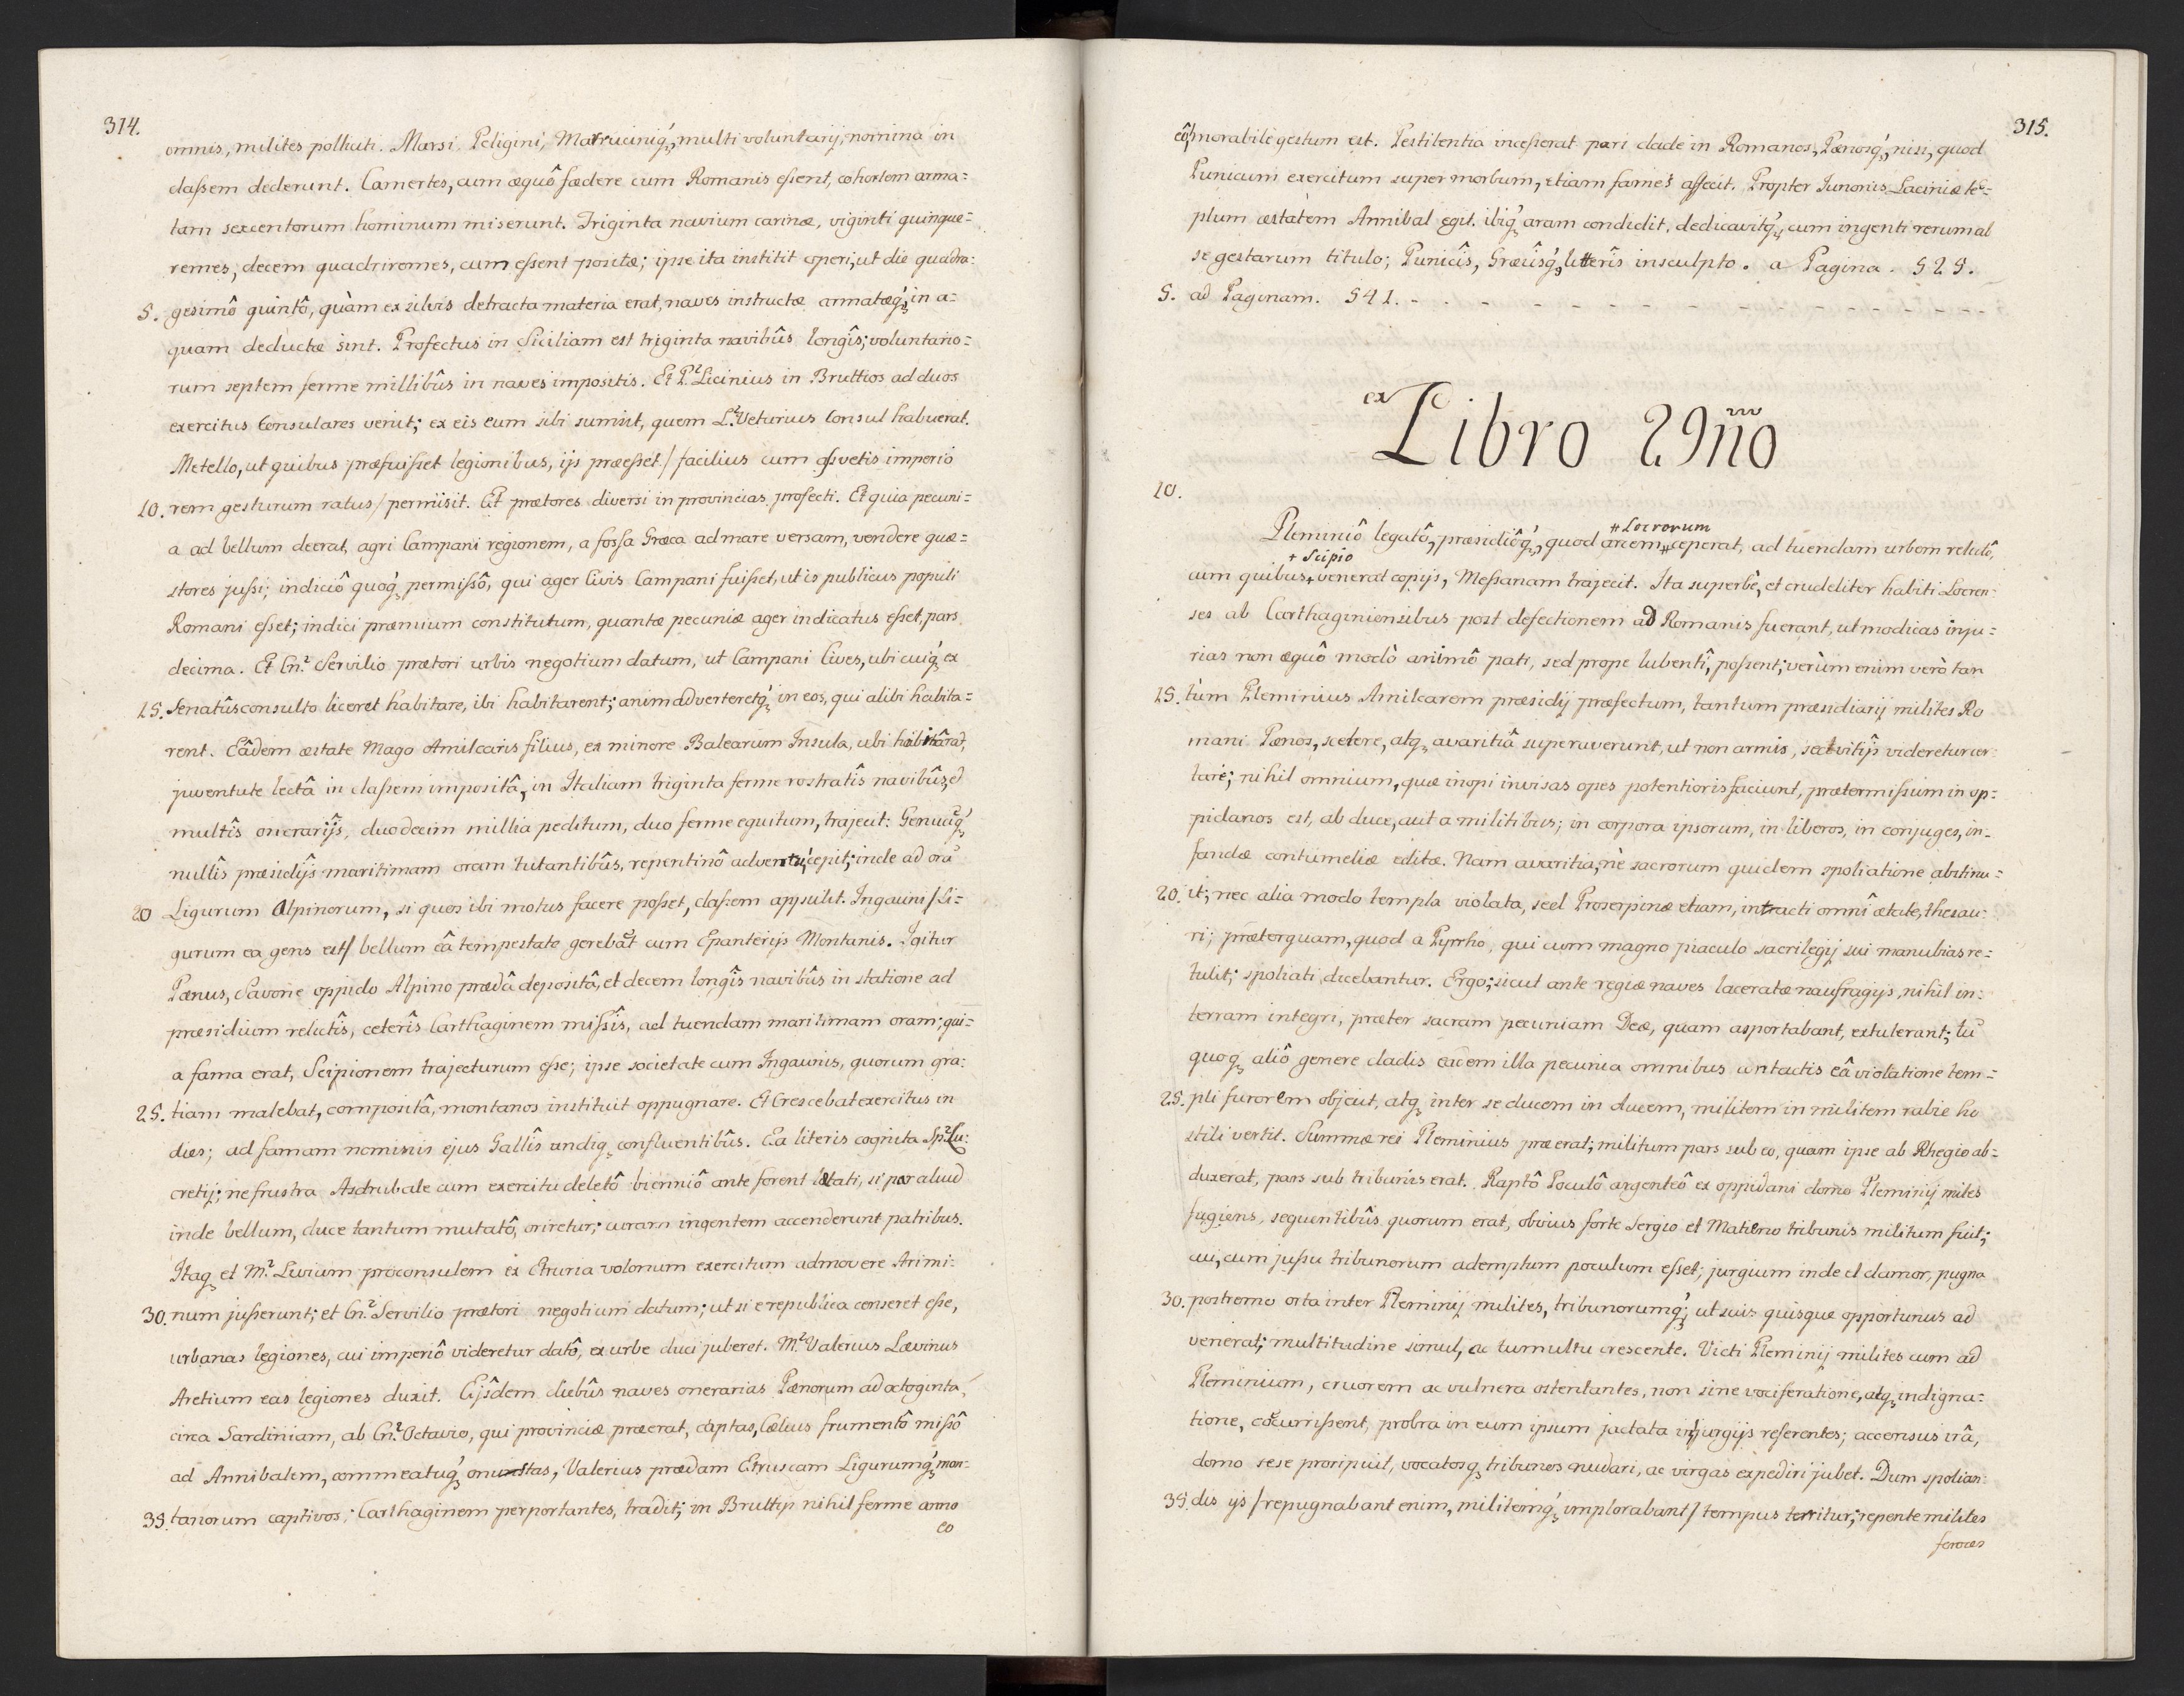 314.
omnis, milites polliciti. Marsi, Peligini, Marruciniq́;, multi voluntarij, nomina in
classem dederunt. Camertes, cum æquô fædere cum Romanis essent, cohortem arma=
tam sexcentorum hominum miserunt. Triginta navium carinæ, viginti quinque=
remes, decem quadriremes, cum essent positæ; ipse ita institit operi, ut die quadra:
5. gesimô quintô, quàm ex silvis detracta materia erat, naves instructæ armatæq́; in a=
quam deductæ sint. Profectus in Siciliam est triginta navibûs longîs; voluntario=
rum septem ferme millibûs in naves impositis. Et P.² Licinius in Bruttios ad duos
exercitus Consulares venit; ex eis eum sibi sumsit, quem L.² Veturius Consul habuerat.
Metello, ut quibus præfuisset legionibus, ijs præesset / facilius cum assvetis imperio
10. rem gesturum ratus / permisit. Et prætores diversi in provincias profecti. Et quia pecuni=
a ad bellum deerat, agri Campani regionem, a fossa Græca ad mare versam, vendere quæ=
stores jussi; indiciô quoq́; permissô, qui ager Civis Campani fuisset, ut is publicus populi
Romani esset; indici præmium constitutum, quantæ pecuniæ ager indicatus esset, pars
decima. Et Cn.² Servilio prætori urbis negotium datum, ut Campani Cives, ubi cuiq́; ex
15. Senatûsconsulto liceret habitare, ibi habitarent; animadvertereq́; in eos, qui alibi habita=
rent. Eâdem æstate Mago Amilcaris filius, ex minore Balearum Insula, ubi hibernârat,
juventute lectâ in classem impositâ, in Italiam triginta ferme rostratîs navibûs, et
multîs onerarijs, duodecim millia peditum, duo ferme equitum, trajecit: Genuāq́;
nullîs præsidijs maritimam oram tutantibûs, repentinô adventu, cepit; inde ad orā
20 Ligurum Alpinorum, si quos ibi motus facere posset, classem appulit. Ingauni / Li=
gurum ea gens est / bellum eâ tempestate gerebāt cum Epanterijs Montanis. Igitur
Pænus, Savone oppido Alpino prædâ depositâ, et decem longîs navibûs in statione ad
præsidium relictîs, ceterîs Carthaginem missîs, ad tuendam maritimam oram; qui=
a fama erat, Scipionem trajecturum esse; ipse societate cum Ingaunis, quorum gra:
25. tiam malebat, compositâ, montanos instituit oppugnare. Et Crescebat exercitus in
dies; ad famam nominis ejus Gallîs undiq; confluentibûs. Ea literis cognita Sp.² Lu:
cretij; ne frustra Asdrubale cum exercitu deletô bienniô ante forent lætati, si par aliud
inde bellum, duce tantum mutatô, oriretur; curam ingentem accenderunt patribus.
Itaq; et M.² Livium proconsulem ex Etruria volonum exercitum admovere Arimi:
30. num jusserunt; et Cn.² Servilio prætori negotium datum; ut si e republica censeret esse,
urbanas legiones, cui imperiô videretur datô, ex urbe duci juberet. M.² Valerius Lævinus
Aretium eas legiones duxit. Eijsdem diebûs naves onerarias Pænorum ad octoginta,
circa Sardiniam, ab Cn.² Octavio, qui provinciæ præerat, captas, Cælius frumentô missô
ad Annibalem, commeatuq́; onustas, Valerius prædam Etruscam Ligurumq́; mon=
35. tanorum captivos; Carthaginem perportantes, tradit; in Bruttijs nihil ferme anno
eo
315.
eô memorabile gestum est. Pestilentia incesserat pari clade in Romanos, Pænosq́;, nisi, quod
Punicum exercitum super morbum, etiam fames affecit. Propter Junonis Laciniæ tē=
plum æstatem Annibal egit. ibiq́; aram condidit, dedicavitq́;, cum ingenti rerum ab
se gestarum titulo; Punicîs, Græcîsq́; litterîs insculpto. a Pagina. 525.
5. ad Paginam. 541. - - - - - - - - - - - - - - -
ex Libro 29no
10.
# Locrorum
Pleminiô legatô, præsidiôq́;, quod arcem # ceperat, ad tuendam urbem relictô,
+ Scipio
cum quibus + venerat copijs, Messanam trajecit. Ita superbè, et crudeliter habiti Locren:
ses ab Carthaginiensibus post defectionem ad Romanis fuerant, ut modicas inju=
rias non æquô modò animô pati, sed prope lubentî, possent; verùm enim verò tan
15. tùm Pleminius Amilcarem præsidij præfectum, tantum præsidiarij milites Ro
mani Pænos, scelere, atq; avaritiâ superaverunt, ut non armis, sed vitijs videretur cer
tare; nihil omnium, quæ inopi invisas opes potentioris faciunt, prætermissum in op=
pidanos est, ab duce, aut a militibus; in corpora ipsorum, in liberos, in conjuges, in=
fandæ contumeliæ editæ. Nam avaritia, nè sacrorum quidem spoliatione abstinu=
20. it; nec alia modo templa violata, sed Proserpinæ etiam, intacti omnî ætate, thesau:
ri; præterquam, quod a Pyrrho, qui cum magno piaculo sacrilegij sui manubias re=
tulit; spoliati dicebantur. Ergo; sicut ante regiæ naves laceratæ naufragijs, nihil in:
terram integri, præter sacram pecuniam Deæ, quam asportabant, extulerant; tū
quoq; aliô genere cladis eadem illa pecunia omnibus contactis eâ violatione tem=
25. pli furorem objecit, atq; inter se ducem in ducem, militem in militem rabie ho
stili vertit. Summæ rei Pleminius præerat; militum pars sub eo, quam ipse ab Rhegio ab=
duxerat, pars sub tribunis erat. Raptô Poculô argenteô ex oppidani domo Pleminij miles
fugiens, sequentibûs, quorum erat, obvius forte Sergio et Matieno tribunis militum fuit;
cui, cum jussu tribunorum ademptum poculum esset; jurgium inde et clamor, pugna
30. postremo orta inter Pleminij milites, tribunorumq́;; ut suis quisque opportunus ad
venerat; multitudine simul, ac tumultu crescente. Victi Pleminij milites cum ad
Pleminium, cruorem ac vulnera ostentantes, non sine vociferatione, atq; indigna=
tione, cōcurrissent, probra in eum ipsum jactata in jurgijs referentes; accensus irâ,
domo sese proripuit, vocatosq; tribunos nudari, ac virgas expediri jubet. Dum spolian:
35. dis ijs / repugnabant enim, militemq́; implorabant / tempus teritur; repente milites
feroces